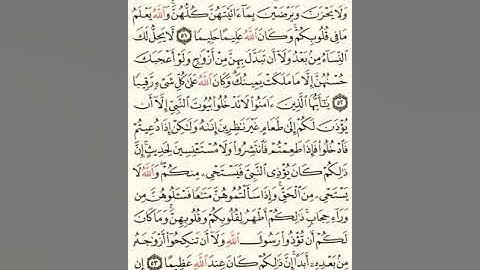 وَلَا يَحْزَنَّ وَيَرْضَيْنَ بِمَآ ءَاتَيْتَهُنَّ كُلُّهُنَّ ۚ وَٱللَّهُ يَعْلَمُ
مَا فِى قُلُوبِكُمْ ۚ وَكَانَ ٱللَّهُ عَلِيمًا حَلِيمًا ۝٥١ لَّا يَحِلُّ لَكَ
ٱلنِّسَآءُ مِنۢ بَعْدُ وَلَآ أَن تَبَدَّلَ بِهِنَّ مِنْ أَزْوَٰجٍ وَلَوْ أَعْجَبَكَ
حُسْنُهُنَّ إِلَّا مَا مَلَكَتْ يَمِينُكَ ۗ وَكَانَ ٱللَّهُ عَلَىٰ كُلِّ شَىْءٍ رَّقِيبًا
۝٥٢ يَـٰٓأَيُّهَا ٱلَّذِينَ ءَامَنُوا۟ لَا تَدْخُلُوا۟ بُيُوتَ ٱلنَّبِىِّ إِلَّآ أَن
يُؤْذَنَ لَكُمْ إِلَىٰ طَعَامٍ غَيْرَ نَـٰظِرِينَ إِنَىٰهُ وَلَـٰكِنْ إِذَا دُعِيتُمْ
فَٱدْخُلُوا۟ فَإِذَا طَعِمْتُمْ فَٱنتَشِرُوا۟ وَلَا مُسْتَـْٔنِسِينَ لِحَدِيثٍ ۚ إِنَّ
ذَٰلِكُمْ كَانَ يُؤْذِى ٱلنَّبِىَّ فَيَسْتَحْىِۦ مِنكُمْ ۖ وَٱللَّهُ لَا
يَسْتَحْىِۦ مِنَ ٱلْحَقِّ ۚ وَإِذَا سَأَلْتُمُوهُنَّ مَتَـٰعًا فَسْـَٔلُوهُنَّ مِن
وَرَآءِ حِجَابٍ ۚ ذَٰلِكُمْ أَطْهَرُ لِقُلُوبِكُمْ وَقُلُوبِهِنَّ ۚ وَمَا كَانَ
لَكُمْ أَن تُؤْذُوا۟ رَسُولَ ٱللَّهِ وَلَآ أَن تَنكِحُوٓا۟ أَزْوَٰجَهُۥ
مِنۢ بَعْدِهِۦٓ أَبَدًا ۚ إِنَّ ذَٰلِكُمْ كَانَ عِندَ ٱللَّهِ عَظِيمًا ۝٥٣ إِن